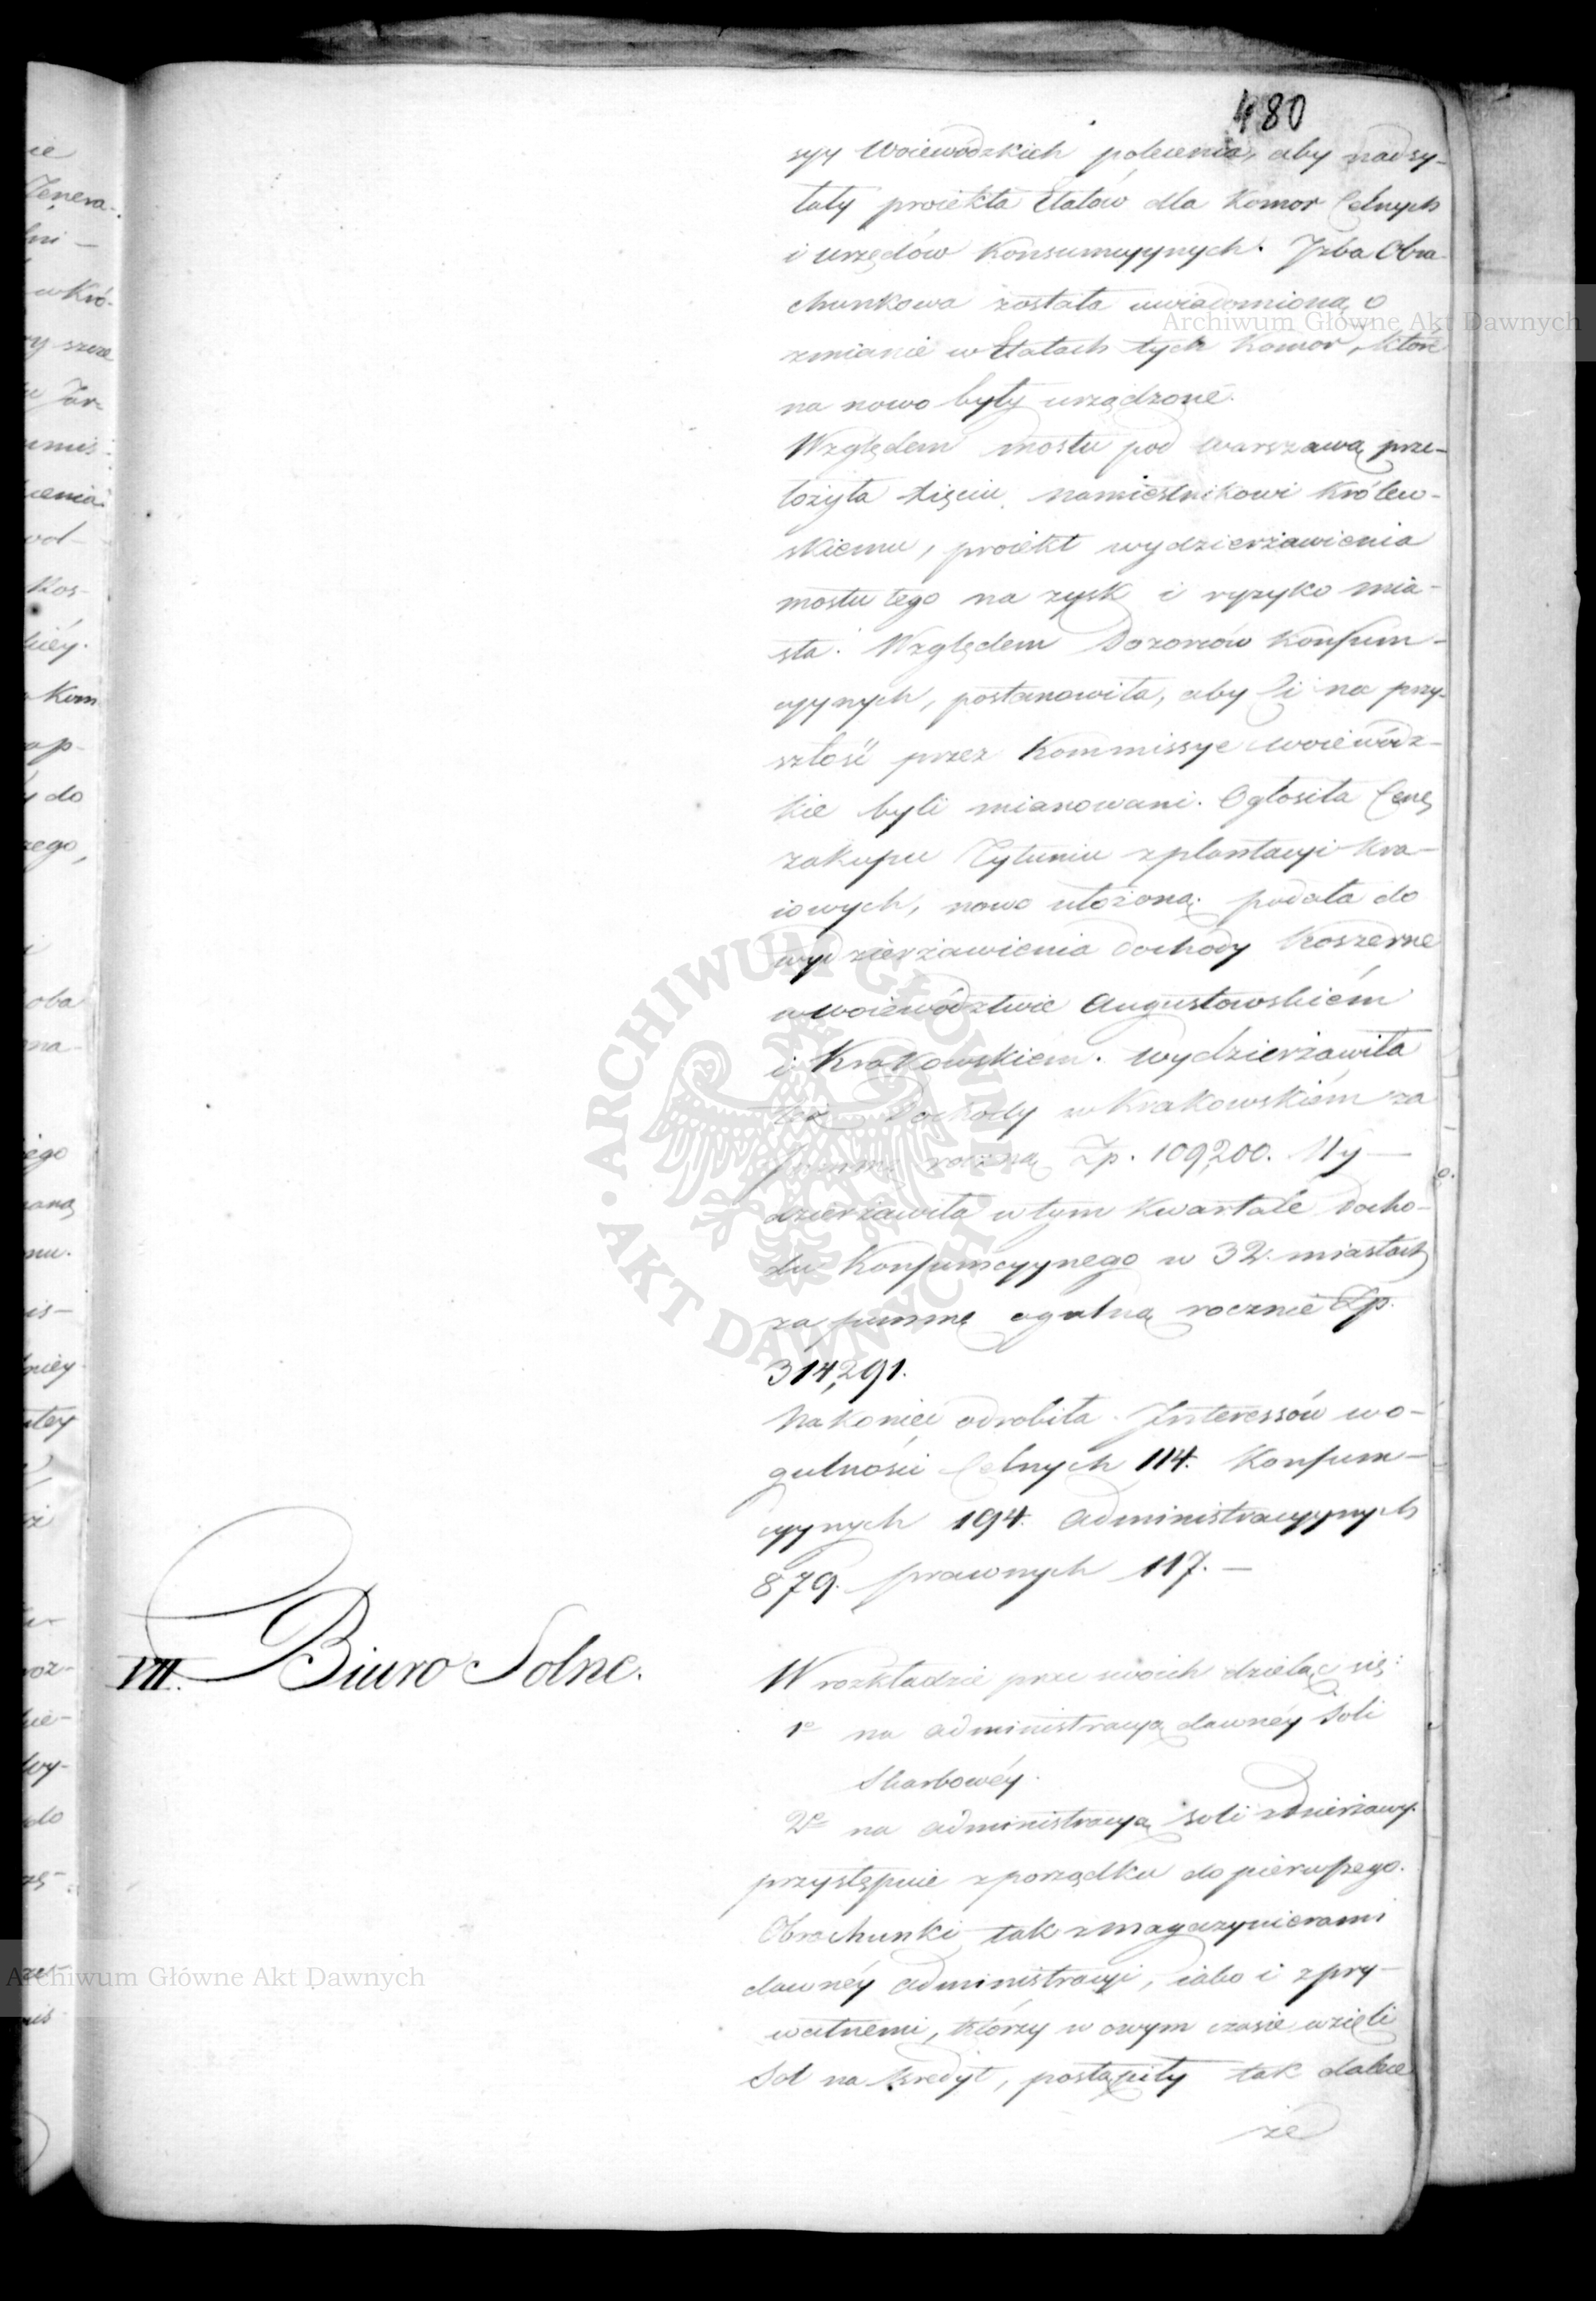 480
syy Woiewódzkich polecenia, aby nadsy-
łały proiekta Etatów dla Komor Celnych
i urzędów Konsumcyynych. Jzba Obra-
chunkowa została uwiadomioną o
zmianie w Etatach tych Komor, które
na nowo były urządzone.
Względem mostu pod Warszawą prze-
łożyła Xięciu Namiestnikowi Królew-
skiemu, proiekt wydzierżawienia
mostu tego na zysk i ryzyko mia-
sta. Względem Dozorców Konsum-
cyynych, postanowiła, aby Ci na przy-
szłość przez Kommissye Woiewódz-
kie byli mianowani. Ogłosiła Cenę
zakupu Tytuniu z plantacyi kra-
iowych, nowo ułożoną. podała do
wydzierżawienia dochody Koszerne
w Woiewództwie Augustowskiém
i Krakowskiém. Wydzierżawiła
też Dochody w Krakowskiém za
summę roczną Zp. 109,200. Wy-
dzierżawiła w tym Kwartale Docho-
du Konsumcyynego w 32. miastach
za summę ogulną rocznie Zp.
314,291.
Nakoniec odrobiła Jnteressów wo-
gulności Celnych 114. Konsum-
cyynych 194. Administracyynych
879. prawnych 117. —
VIII. Biuro Solne.
W rozkładzie prac swoich dzieląc się:
1º na administracyą dawnéy Soli
Skarbowéy.
2º na administracyą soli z dzierżawy.
przystępuie z porządku do pierwszego.
Obrachunki tak z Magazynierami
dawnéy administracyi, iako i z pry-
watnemi, którzy w owym czasie wzięli
Sol na kredyt, postąpiły tak dalece
że
Archiwum Główne Akt Dawnych
Archiwum Główne Akt Dawnych
ARCHIWUM GŁÓWNE AKT DAWNYCH